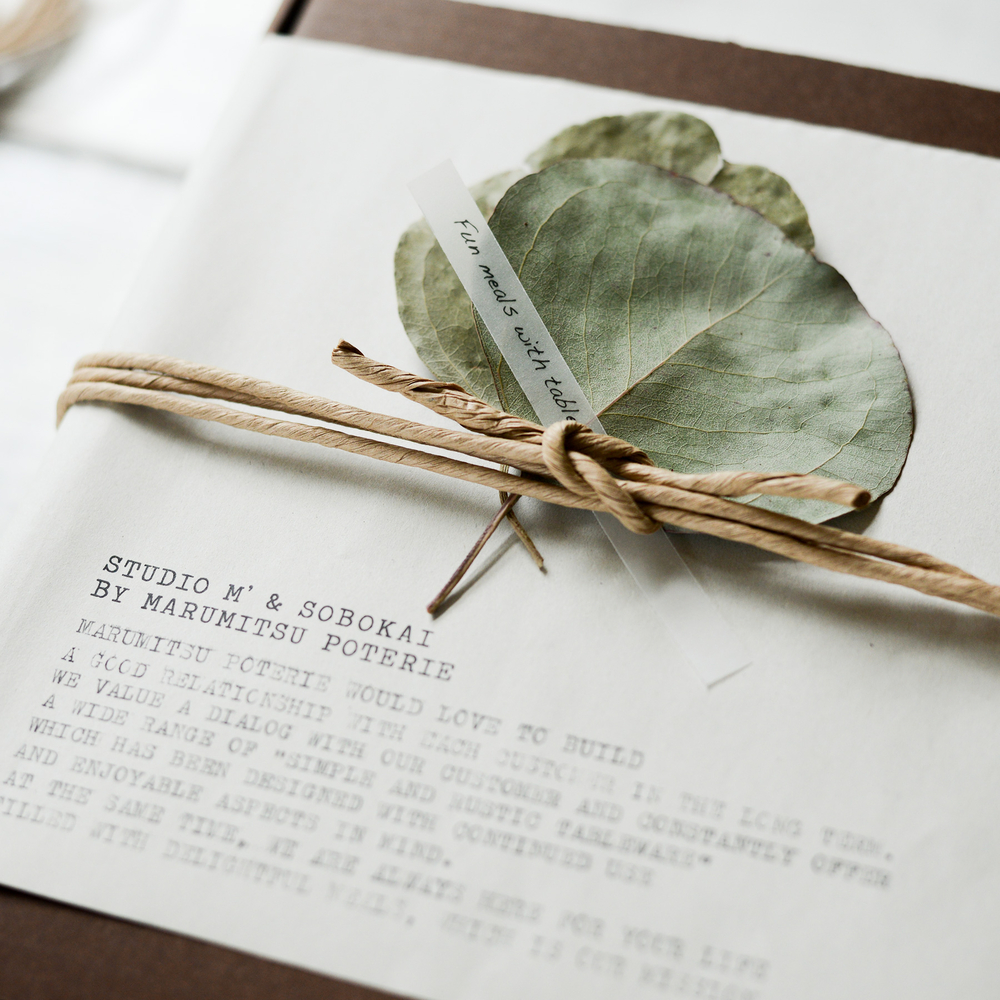 Fun meals with table
STUDIO M' & SOBOKAI
BY MARUMITSU POTERIE
MARUMITSU POTERIE WOULD LOVE TO BUILD
A GOOD RELATIONSHIP WITH EACH CUSTOMER IN THE LONG TERM.
WE VALUE A DIALOG WITH OUR CUSTOMER AND CONSTANTLY OFFER
A WIDE RANGE OF "SIMPLE AND RUSTIC TABLEWARE"
WHICH HAS BEEN DESIGNED WITH CONTINUED USE
AND ENJOYABLE ASPECTS IN MIND.
AT THE SAME TIME, WE ARE ALWAYS HERE FOR YOUR LIFE
FILLED WITH DELIGHTFUL MEALS, WHICH IS OUR MISSION